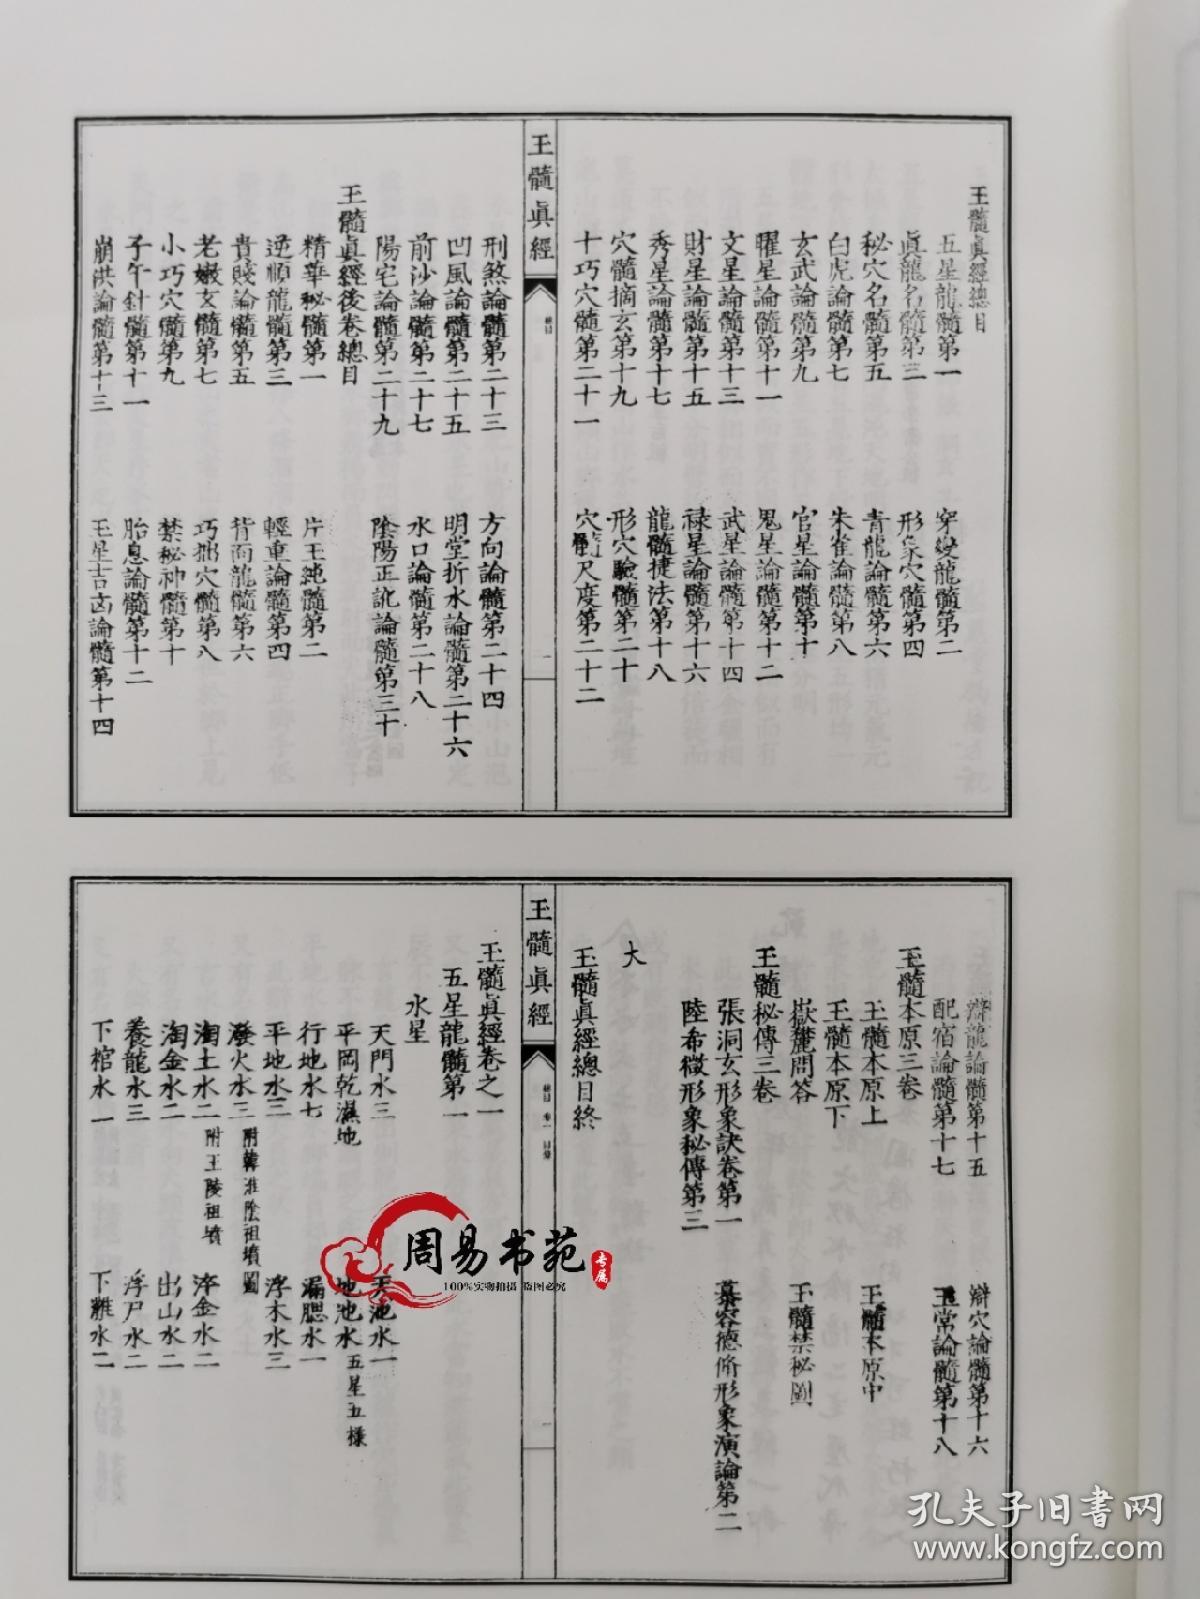 玉髓眞經總目
五星龍髓第一　穿變龍髓第二
眞龍名髓第三　形象穴髓第四
秘穴名髓第五　青龍論髓第六
白虎論髓第七　朱雀論髓第八
玄武論髓第九　官星論髓第十
曜星論髓第十一　鬼星論髓第十二
文星論髓第十三　武星論髓第十四
財星論髓第十五　禄星論髓第十六
秀星論髓第十七　龍髓捷法第十八
穴髓摘玄第十九　形穴驗髓第二十
十巧穴髓第二十一　穴髓尺度第二十二
玉髓眞經
總目
一
刑煞論髓第二十三　方向論髓第二十四
凹風論髓第二十五　明堂折水論髓第二十六
前沙論髓第二十七　水口論髓第二十八
陽宅論髓第二十九　陰陽正訛論髓第三十
玉髓眞經後卷總目
精華秘髓第一　片玉純髓第二
逆順龍髓第三　輕重論髓第四
貴賤論髓第五　背面龍髓第六
老嫩玄髓第七　巧拙穴髓第八
小巧穴髓第九　禁秘神髓第十
子午針髓第十一　胎息論髓第十二
崩洪論髓第十三　玉星吉凶論髓第十四
辯龍論髓第十五　辯穴論髓第十六
配宿論髓第十七　玉常論髓第十八
玉髓本原三卷
玉髓本原上　玉髓本原中
玉髓本原下
嶽麓問答　玉髓禁秘圖
玉髓秘傳三卷
張洞玄形象訣卷第一　慕容德脩形象演論第二
陸希微形象秘傳第三
大
玉髓眞經總目終
玉髓眞經
總目 卷一 目錄
一
玉髓眞經卷之一
五星龍髓第一
水星
天門水三　天池水一
平岡乾濕地　地池水五星五樣
行地水七　漏腮水一
平地水三　浮木水三
潑火水三附韓淮陰祖墳圖
淘土水二附王陵祖墳　淬金水二
淘金水二　出山水二
養龍水三　浮尸水二
下棺水一　下雜水二
周易书苑
专属
100%实物拍摄 盗图必究
孔夫子旧书网
www.kongfz.com